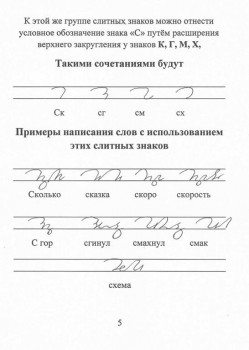 К этой же группе слитных знаков можно отнести
условное обозначение знака «С» путём расширения
верхнего закругления у знаков К, Г, М, Х,
Такими сочетаниями будут
Ск сг см сх
Примеры написания слов с использованием
этих слитных знаков
Сколько сказка скоро скорость
С гор сгинул смахнул смак
схема
5